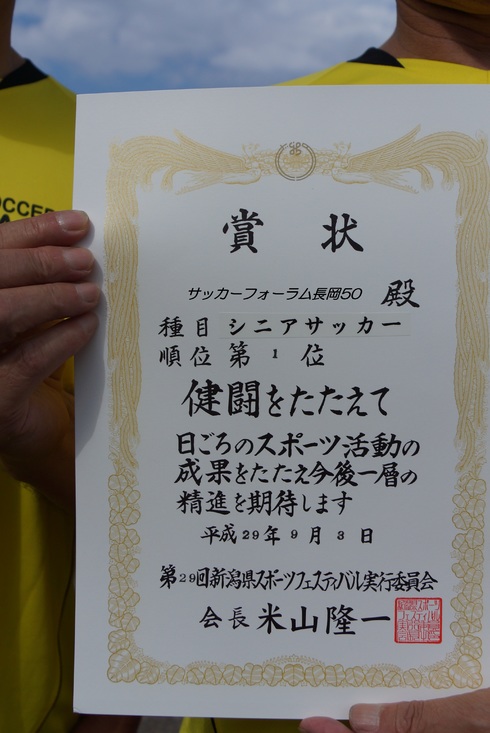 OCCER
賞 状
サッカーフォーラム長岡50 殿
種目 シニアサッカー
順位 第 1 位
健闘をたたえて
日ごろのスポーツ活動の
成果をたたえ今後一層の
精進を期待します
平成29年9月3日
第29回新潟県スポーツフェスティバル実行委員会
会長 米山隆一